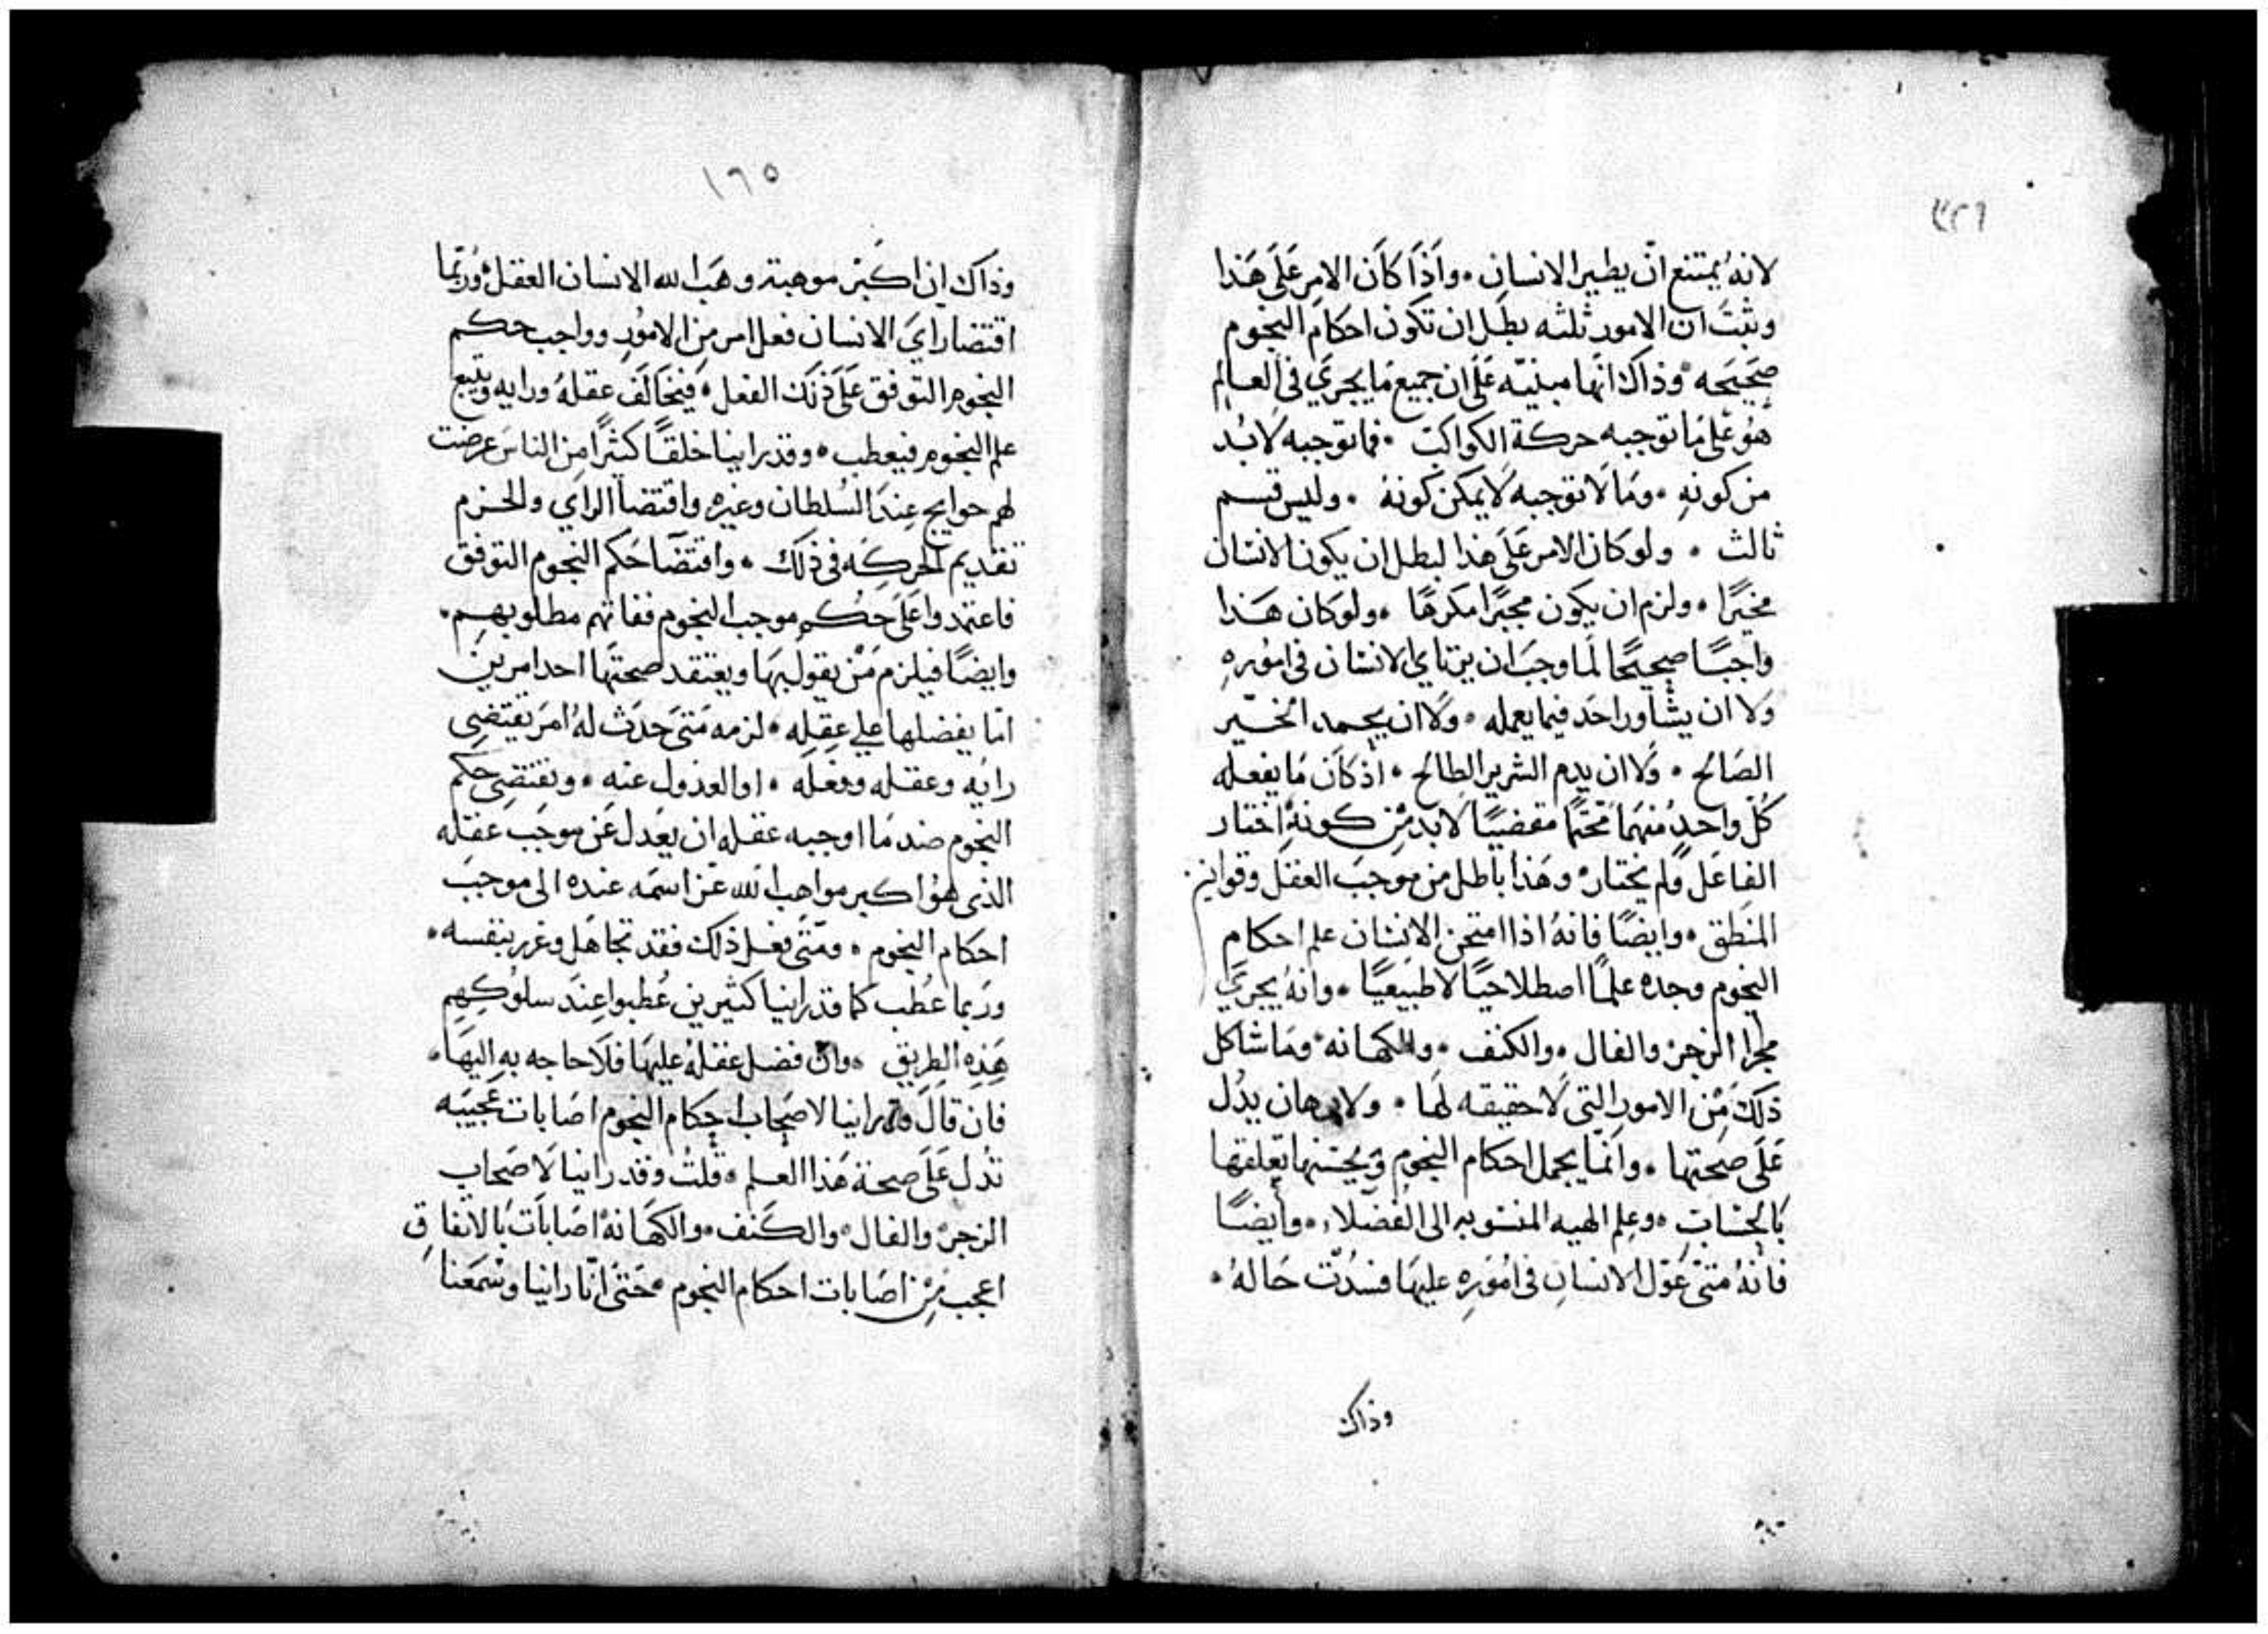 ٣٢٦
لانهُ يمتنع انّ يطير الانسان • واَذَا كاَن الامر عَلَى هَذا
وثبتَ ان الامور ثلثه بطل ان تكون احكام النجوم
صَحيَحه • وذاك انها مبنيّه عَلَى ان جميع مَا يجريَ في العالم
هوُ عَلى مَا توجبه حركة الكواكب • فما توجبه لابُد
من كونهِ • ومَا لا توجبه لا يمكن كونهُ • وليس قسم
ثالث • ولو كان الامر عَلَى هَذا لبطل ان يكون الانسان
مخيرًا • ولزم ان يكون مجبرًا مكرهًا • ولو كان هَذا
واجبًا صحيحًا لمَا وجبَ ان يرتاي الانسان في امورهِ
وَلا ان يشاور احَد فيما يعمله • وَلا ان يحمد الخيّر
الصَالح • وَلا ان يذم الشرير الطالح • اذ كاَن مَا يفعله
كُل واحدٍ منهمَا محتمًا مقضيًا لابد مْن كونهِ اختار
الفاعَل ولم يختار • وهَذا باطل من موجَب العقل وقوانين
المنطق • وايضًا فانهُ اذا امتحن الانسان علم احكام
النجوم وجده علمًا اصطلاحيًا لا طبيعيًا • وانهُ يجريَ
مجرا الزجر • والفال • والكتف • والكهانه • ومَا شاكل
ذلكَ مْن الامور التي لا حقيقه لهَا • ولا برهان يدُل
عَلَى صحتها • وانمّا يجمل احكام النجوم ويحسّنها تعلقها
بَالحسَاب • وعلم الهيه المنسوبه الى الفضلاء • وايضًا
فانهُ متىَ عَوّل الانسان في امُورِهِ عليهَا فسدُت حَالهُ •
وذاك
١٦٥
وذاك ان اكبر موهبة وهَب الله الانسان العقل • ورُبمّا
اقتضا رايَ الانسان فعل امر من الامُورِ وواجب حكم
النجوم التوقف عَلَى ذلَك الفعل • فيخَالَف عقلهُ ورايه ويتبع
علم النجوم فيعطب • وقد راينا خلقًا كثيرًا من الناس عرضت
لهم حوايج عِندَ السُلطان وغيره واقتضا الراي والحزم
تقديم الحركه في ذلك • واقتضا حَكم النجوم التوقف
فاعتمدوا عَلَى حكم موجب النجوم ففاتهم مطلوبهم •
وايضًا فيلزم مَنْ يقول بهَا ويعتقد صحتهَا احد امرين
امّا يفضلها علي عقله • لزمه مَتىَ حَدَث لهُ امرَ يقتضِى
رايه وعقله وفعله • او العدول عنه • ويقتضِى حكم
النجوم ضد مَا اوجبه عقله ان يعَدل عَن موجَب عقله
الذي هوُ اكبر مواهب الله عَز اسمَه عنده الى موجَب
احكام النجوم • ومَتىَ فعل ذلك فقد تجاهَل وغرر بنفسه •
ورَبما عُطب كما قد راينا كثيرين عُطبوا عِندَ سلُوكهم
هَذِه الطريق • وان فضل عقلهُ عليهَا فلَا حاجه به اليهَا •
فان قال قد راينا لاصَحاب احكام النجوم اصَابات عَجيَبه
تدُل عَلَى صحة هَذا العلم • قلُت وقد راينا لاصَحاب
الزجر • والفال • والكَتف • والكهَانهُ اصَابَات بَالاتفاق
اعجب مْن اصَابات احكام النجوم • حَتىَ انّا راينا وسْمعَنا